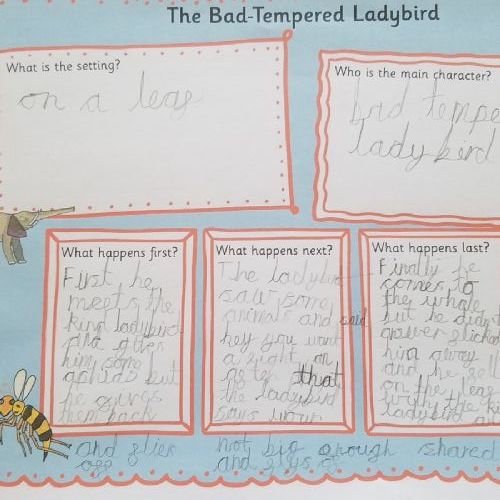 The Bad-Tempered Ladybird
What is the setting?
on a leaf
Who is the main character?
bad tempe
ladybird
What happens first?
First he
meets the
kind ladybird
and gives
him some
aphids but
he gives
them back
and flies
off
What happens next?
The ladybird
saw some
animals and said
hey you want
a fight an
after that
the ladybird
says your
not big enough
and flys of
What happens last?
Finally he
comes to
the whale
but he didn't
answer flicked
him away
and he fell
on the leaf
with the ki
ladybird an
shared